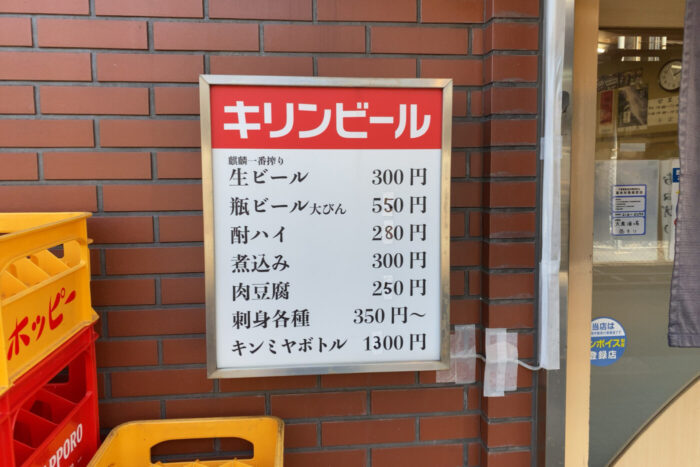 キリンビール
麒麟一番搾り
生ビール 300円
瓶ビール大びん 550円
酎ハイ 280円
煮込み 300円
肉豆腐 250円
刺身各種 350円～
キンミヤボトル 1300円
ホッピー
SAPPORO
当店は
登録店